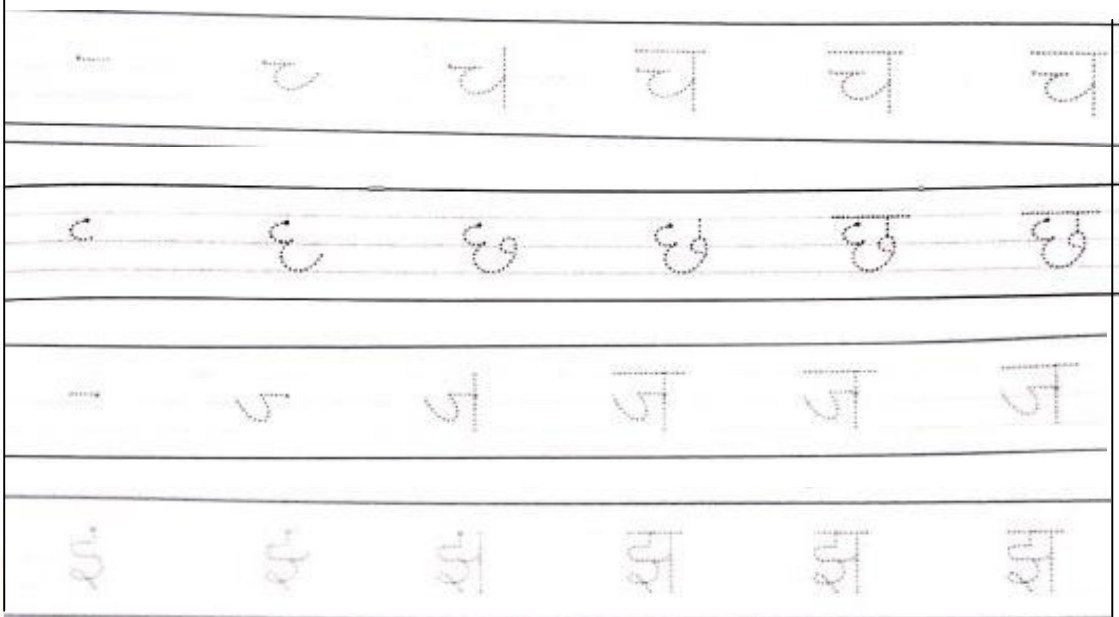 च च च
छ छ
ज ज ज
झ झ झ